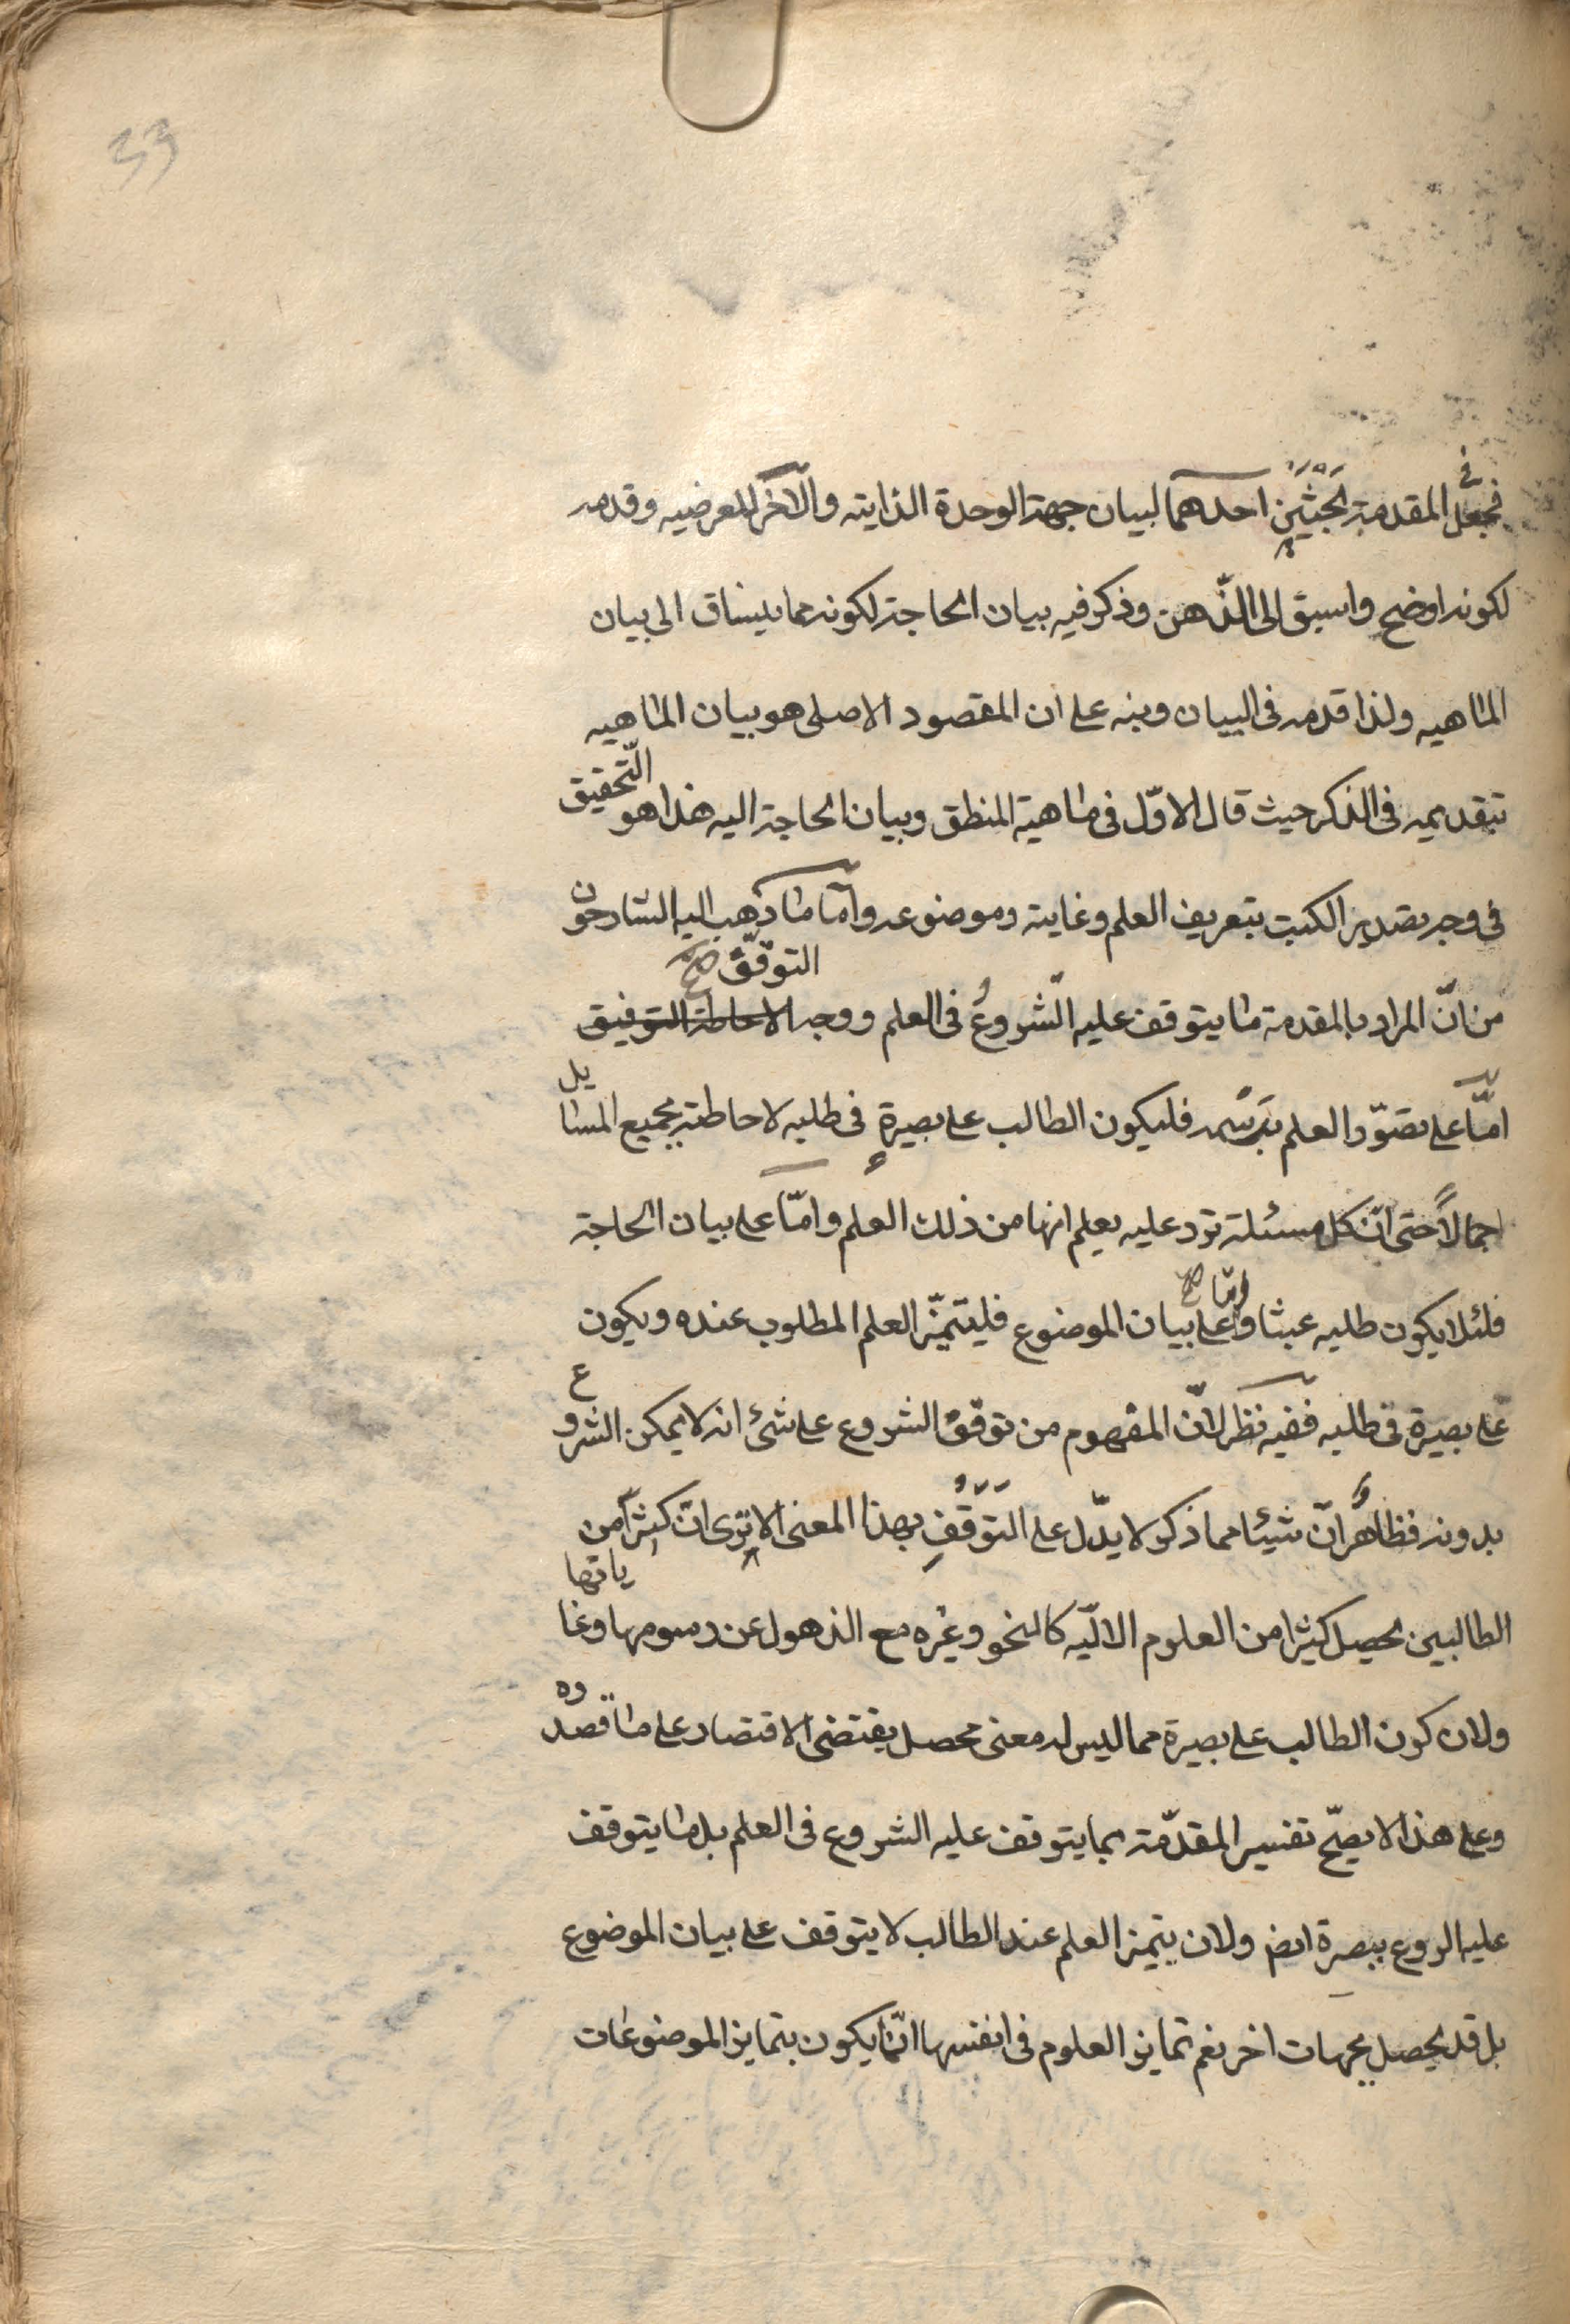 33
فجعل في المقدمة بحثين احدهما لبيان جهة الوحدة الذايته والآخر للعرضيه وقدمه
لكونه اوضح واسبق الى الذّهن وذكر فيه بيان الحاجة لكونه مما ينساق الى بيان
الماهيه ولذا قدمه فى البيان ونبه على ان المقصود الاصلى هو بيان الماهيه
بتقديمه فى الذكر حيث قال الاوّل فى ماهية المنطق وبيان الحاجة اليه هذا هو التّحقيق
فى وجه تصدير الكتب بتعريف العلم وغايته وموضوعه وأمّا ما ذهب اليه الشارحون
من انّ المراد بالمقدمة ما يتوقف عليه الشّروعُ فى العلم ووجه الاحاطة التوفيق التوقّف صح
امّا على تصوّر العلم برَسْمه فليكون الطالب على بصيرةٍ فى طلبه لاحاطته بجميع المسايل
اجمالاً حتى انّ كل مسئلة ترد عليه يعلم انها من ذلك العلم وامّا على بيان الحاجة
فلئلا يكون طلبه عبثا وامّا صح على بيان الموضوع فليتميّز العلم المطلوب عنده ويكون
على بصيرة فى طلبه ففيه نظر لانّ المفهوم من توقّف الشروع على شئ انه لا يمكن الشروع
بدونه فظاهرٌ انّ شيئا مما ذكر لا يدّل على التَوَقُّفِ بهذا المعنى الا ترى انّ كثيرا من
الطالبين يحصل كثيرا من العلوم الاليّه كالنحو وغيره مع الذهول عن رسومها وغاياتها
ولان كون الطالب على بصيرة مما ليس له معنى محصل يقتضى الاقتصار على ما قصدوه
وعلى هذا لا يصحّ تفسير المقدّمة بما يتوقف عليه الشروع فى العلم بل ما يتوقف
عليه الروع ببصرة ايض ولان يتميز العلم عند الطالب لا يتوقف على بيان الموضوع
بل قد يحصل بجهات اخر نعم تمايز العلوم فى انفسها انّما يكون بتمايز الموضوعات